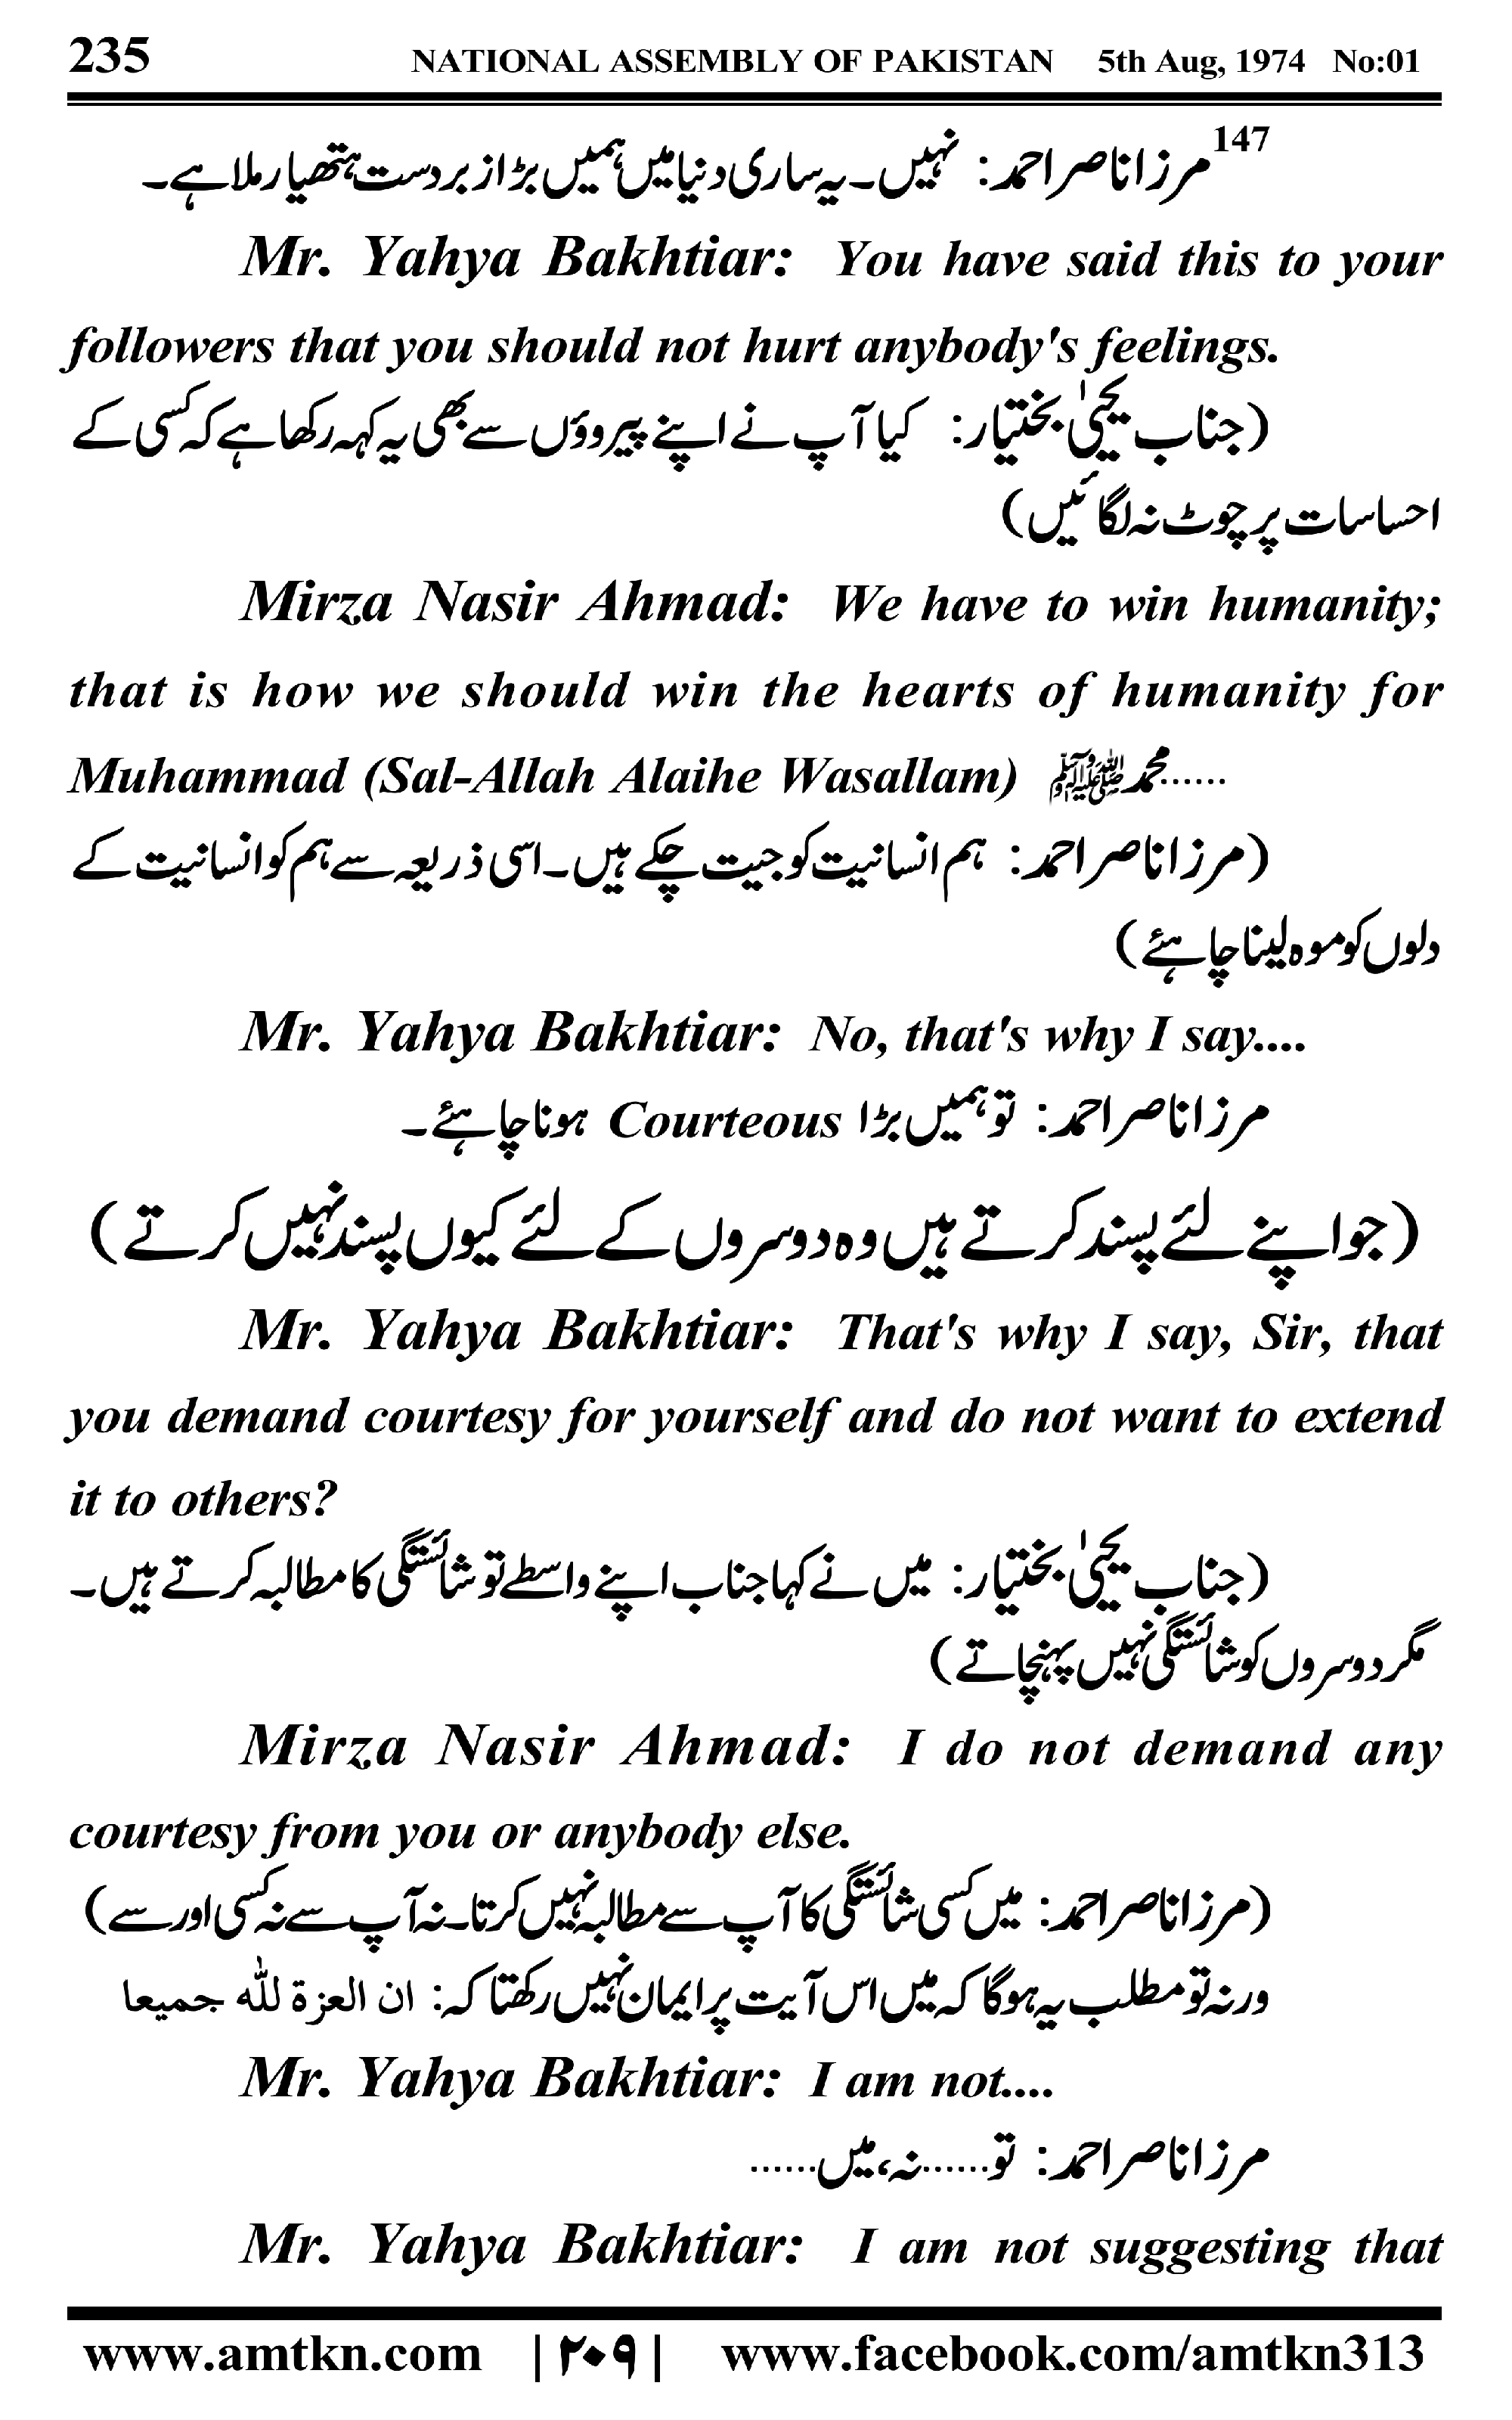 235 NATIONAL ASSEMBLY OF PAKISTAN 5th Aug, 1974 No:01
147مرزا ناصر احمد: نہیں۔ یہ ساری دنیا میں ہمیں بڑا زبردست ہتھیار ملا ہے۔
Mr. Yahya Bakhtiar: You have said this to your
followers that you should not hurt anybody's feelings.
(جناب یحییٰ بختیار: کیا آپ نے اپنے پیروؤں سے بھی یہ کہہ رکھا ہے کہ کسی کے
احساسات پر چوٹ نہ لگائیں)
Mirza Nasir Ahmad: We have to win humanity;
that is how we should win the hearts of humanity for
Muhammad (Sal-Allah Alaihe Wasallam) محمد ﷺ......
(مرزا ناصر احمد: ہم انسانیت کو جیت چکے ہیں۔ اسی ذریعہ سے ہم کو انسانیت کے
دلوں کو موہ لینا چاہئے)
Mr. Yahya Bakhtiar: No, that's why I say....
مرزا ناصر احمد: تو ہمیں بڑا Courteous ہونا چاہئے۔
(جو اپنے لئے پسند کرتے ہیں وہ دوسروں کے لئے کیوں پسند نہیں کرتے)
Mr. Yahya Bakhtiar: That's why I say, Sir, that
you demand courtesy for yourself and do not want to extend
it to others?
(جناب یحییٰ بختیار: میں نے کہا جناب اپنے واسطے تو شائستگی کا مطالبہ کرتے ہیں۔
مگر دوسروں کو شائستگی نہیں پہنچاتے)
Mirza Nasir Ahmad: I do not demand any
courtesy from you or anybody else.
(مرزا ناصر احمد: میں کسی شائستگی کا آپ سے مطالبہ نہیں کرتا۔ نہ آپ سے نہ کسی اور سے)
ورنہ تو مطلب یہ ہوگا کہ میں اس آیت پر ایمان نہیں رکھتا کہ: ان العزة للّٰه جميعا
Mr. Yahya Bakhtiar: I am not....
مرزا ناصر احمد: تو......نہ، میں......
Mr. Yahya Bakhtiar: I am not suggesting that
www.amtkn.com |۲۰۹| www.facebook.com/amtkn313